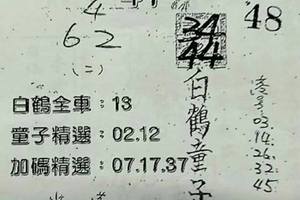 4
62
(二)
白鶴全車:13
童子精選:02.12
加碼精選:07.17.37
34
44
白鶴童子
48
03.
14.
26.
32.
45.